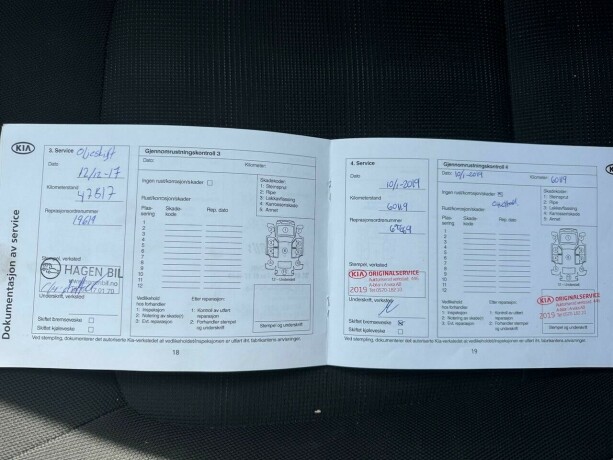 Dokumentasjon av service
KIA
3. Service Oljeskift
Dato:
12/12-17
Kilometerstand
47517
Reprasjonsordrenummer:
19619
Stempel, verksted
HAGEN BIL
Underskrift, verksted
Skiftet bremsevæske:
Skiftet kjølevæske:
Gjennomrustningskontroll 3
Dato:
Kilometer:
Ingen rust/korrosjon/skader
Rust/korrosjon/skader
Plas-
sering
Skade-
kode
Rep. dato
1
2
3
4
5
6
7
8
9
10
11
12
Skadekoder:
1: Steinsprut
2: Ripe
3: Lakkavflassing
4: Karosseriskade
5: Annet
12 – Understell
Vedlikehold
hos forhandler
1: Inspeksjon
2: Notering av skade(r)
3: Evt. reparasjon
Etter reparasjon:
1: Kontroll av utført
reparasjon
2: Forhandler stempel
og underskrift
Stempel og underskrift
Ved stempling, dokumenterer det autoriserte Kia-verkstedet at vedlikeholdet/inspeksjonen er utført iht. fabrikantens anvisninger.
18
4. Service
Dato:
10/1-2019
Kilometerstand
60119
Reprasjonsordrenummer:
Stempel, verksted
KIA ORIGINALSERVICE
2019
Underskrift, verksted
Skiftet bremsevæske:
Skiftet kjølevæske:
Gjennomrustningskontroll 4
Dato:
10/1-2019
Kilometer:
60119
Ingen rust/korrosjon/skader
Rust/korrosjon/skader
Plas-
sering
Skade-
kode
Rep. dato
1
2
3
4
5
6
7
8
9
10
11
12
Skadekoder:
1: Steinsprut
2: Ripe
3: Lakkavflassing
4: Karosseriskade
5: Annet
12 – Understell
Vedlikehold
hos forhandler
1: Inspeksjon
2: Notering av skade(r)
3: Evt. reparasjon
Etter reparasjon:
1: Kontroll av utført
reparasjon
2: Forhandler stempel
og underskrift
KIA ORIGINALSERVICE
2019
Stempel og underskrift
Ved stempling, dokumenterer det autoriserte Kia-verkstedet at vedlikeholdet/inspeksjonen er utført iht. fabrikantens anvisninger.
19